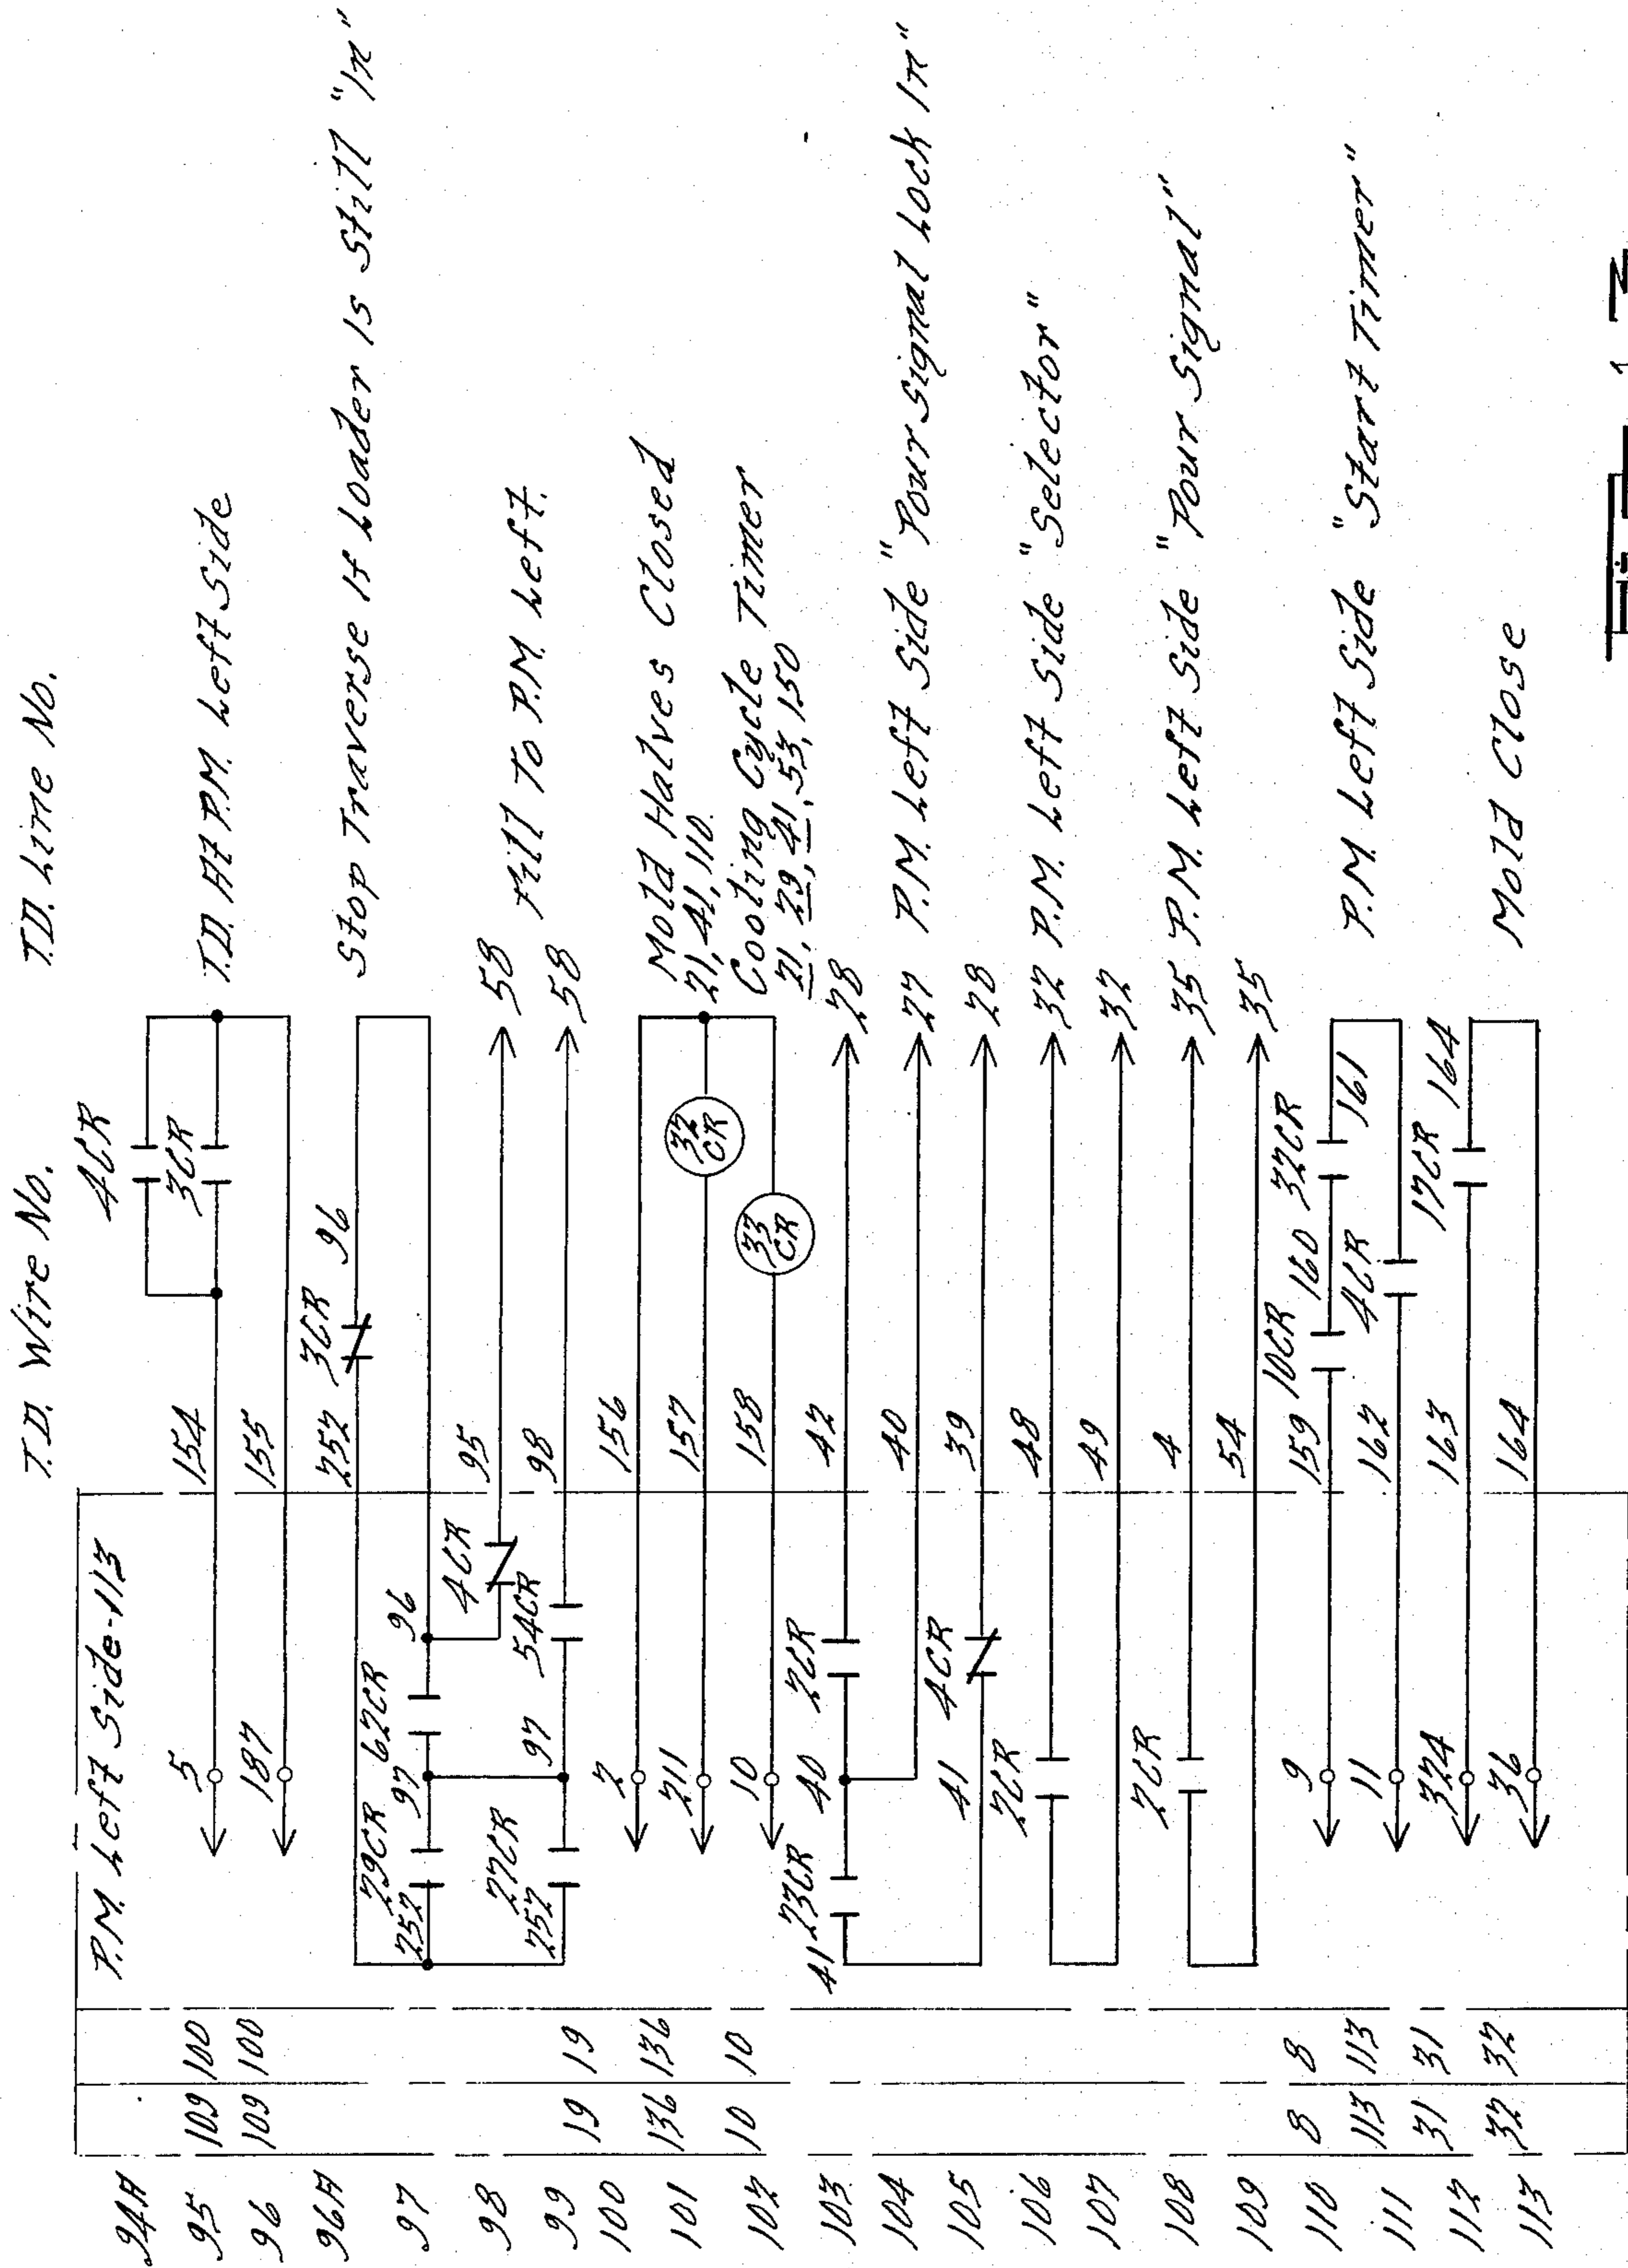 T.D. Wire No.
T.D. Line No.
P.M. Left Side-113
94A
4CR
3CR
95
109
100
5
154
T.D. At P.M. Left Side
96
109
100
187
155
96A
252
3CR
96
Stop Traverse If Loader Is Still "In"
97
252
29CR
97
62CR
96
98
4CR
95
58
Fill To P.M. Left.
99
252
27CR
97
54CR
98
58
100
19
19
2
156
Mold Halves Closed
21, 41, 110.
101
136
136
211
157
32
CR
Cooling Cycle Timer
21, 29, 41, 53, 150
102
10
10
10
158
33
CR
103
41
23CR
40
2CR
42
28
104
40
27
P.M. Left Side "Pour Signal Lock In"
105
41
4CR
39
28
106
2CR
48
32
P.M. Left Side "Selector"
107
49
32
108
2CR
4
35
P.M. Left Side "Pour Signal"
109
54
35
110
8
8
9
159
10CR
160
32CR
161
P.M. Left Side "Start Timer"
111
113
113
11
162
4CR
112
31
31
324
163
17CR
164
Mold Close
113
32
32
36
164